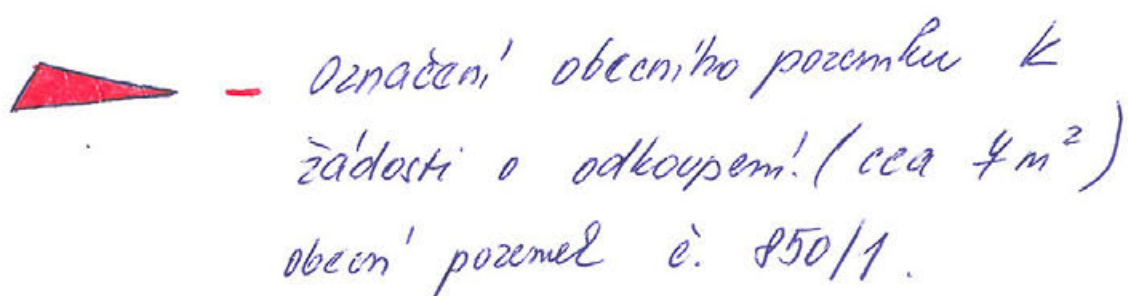 - Označení obecního pozemku k
žádosti o odkoupení. (cca 7 m²)
obecní pozemek č. 850/1.